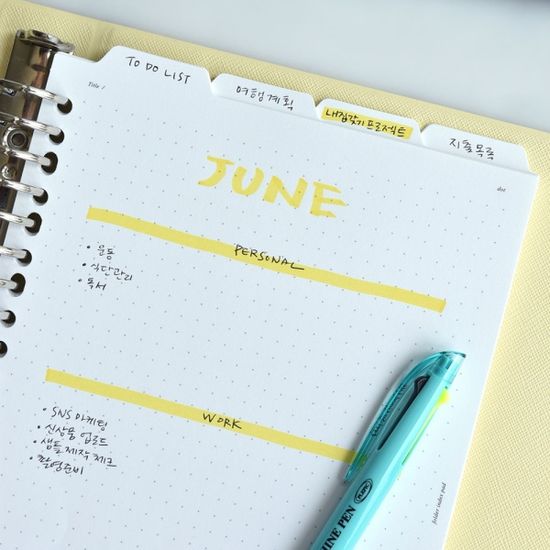 TO DO LIST
여행계획
내집갖기프로젝트
지출목록
Title /
dot
JUNE
PERSONAL
• 운동
• 식단관리
• 독서
WORK
• SNS 마케팅
• 신상품 업로드
• 샘플 제작 체크
• 촬영준비
folder index pad
INE PEN